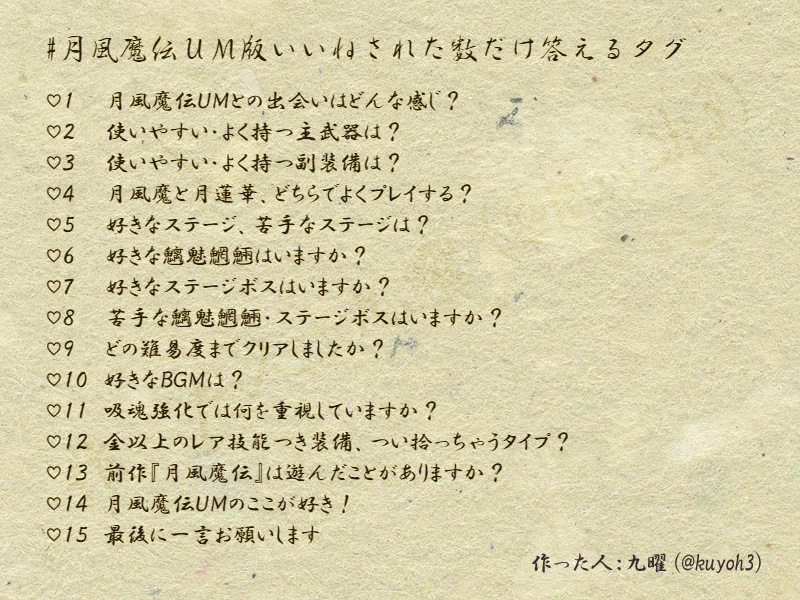 #月風魔伝UM版いいねされた数だけ答えるタグ
♡1 月風魔伝UMとの出会いはどんな感じ？
♡2 使いやすい・よく持つ主武器は？
♡3 使いやすい・よく持つ副装備は？
♡4 月風魔と月蓮華、どちらでよくプレイする？
♡5 好きなステージ、苦手なステージは？
♡6 好きな魑魅魍魎はいますか？
♡7 好きなステージボスはいますか？
♡8 苦手な魑魅魍魎・ステージボスはいますか？
♡9 どの難易度までクリアしましたか？
♡10 好きなBGMは？
♡11 吸魂強化では何を重視していますか？
♡12 金以上のレア技能つき装備、つい拾っちゃうタイプ？
♡13 前作『月風魔伝』は遊んだことがありますか？
♡14 月風魔伝UMのここが好き！
♡15 最後に一言お願いします
作った人：九曜（@kuyoh3）